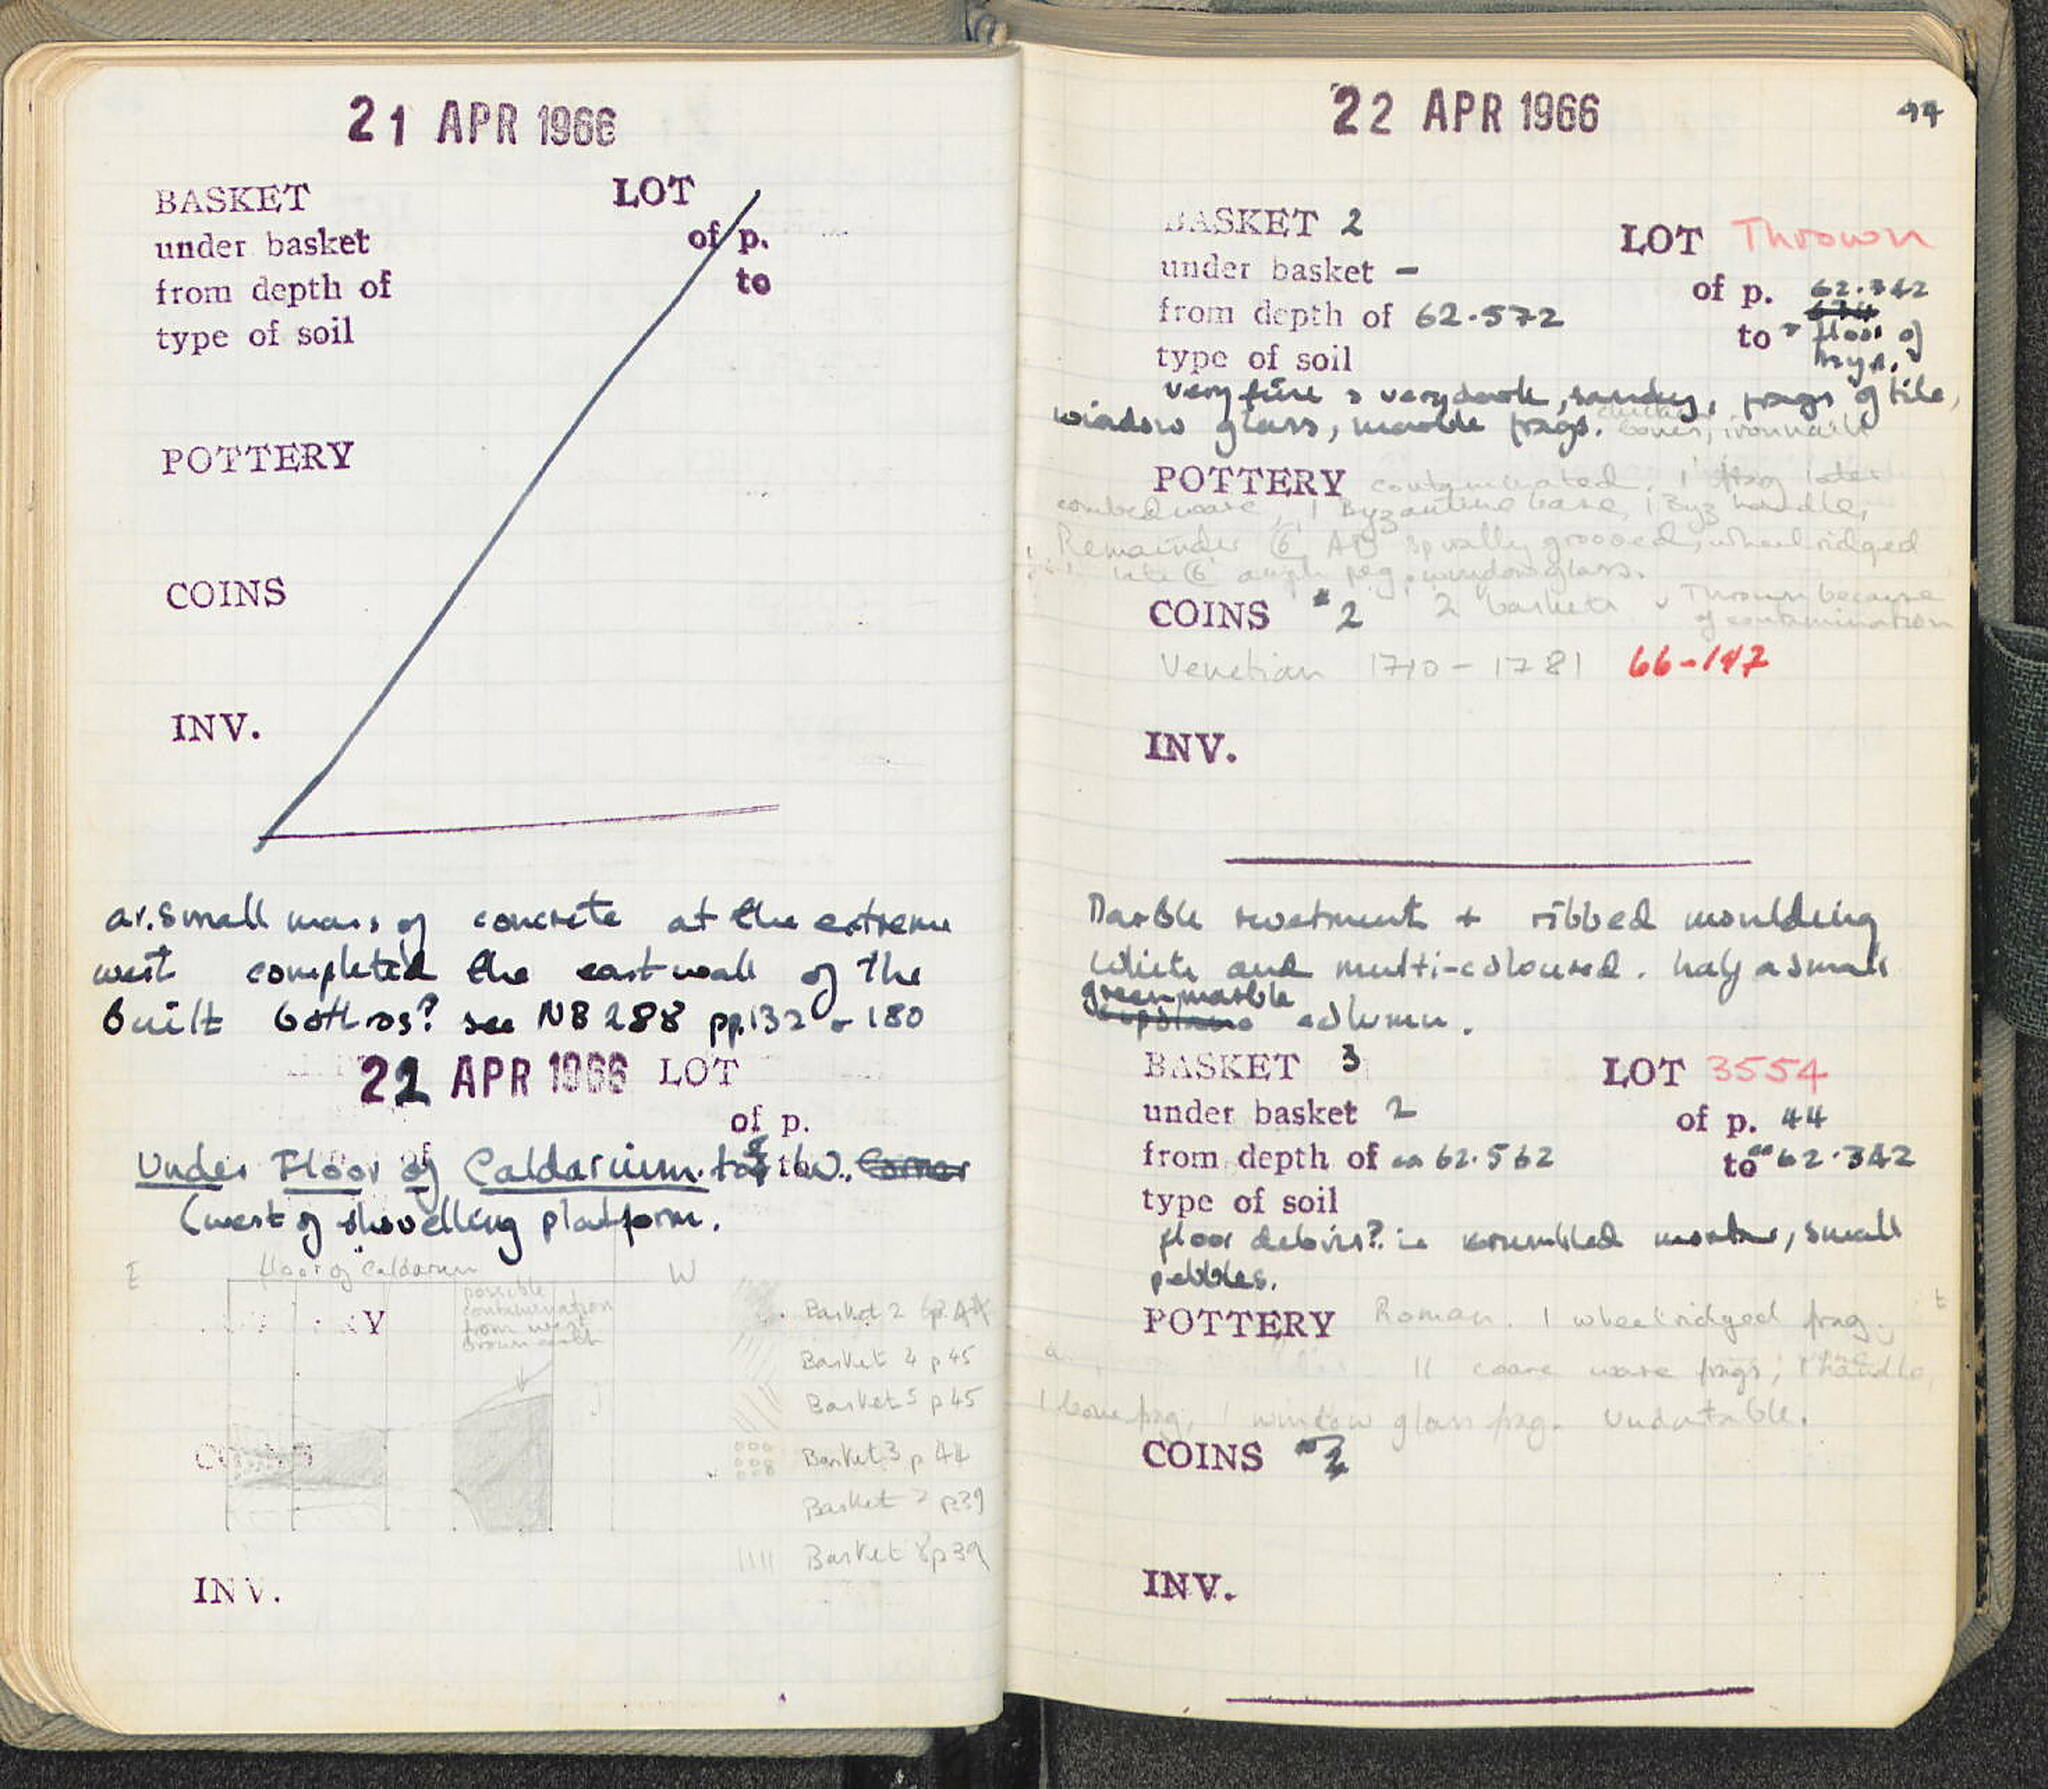 21 APR 1966
BASKET LOT
under basket of p.
from depth of to
type of soil
POTTERY
COINS
INV.
a small mass of concrete at the extreme
west completed the east wall of the
built bothros? see NB 288 pp. 132 - 180
22 APR 1966 LOT
of p.
Under Floor of Caldarium. to W. Corner
(west of shovelling platform.
E floor of Caldarium W
possible
contamination
from west
brown earth
Basket 2 p. 44
Basket 4 p 45
Basket 5 p 45
Basket 3 p 44
Basket 7 p 39
Basket 8 p 39
INV.
22 APR 1966 44
BASKET 2 LOT Thrown
under basket – of p. 62.342
from depth of 62.572 to floor of
type of soil hyp.
very fine & very dark, sandy, frags of tile,
window glass, marble frags. chicken bones, iron nails
POTTERY contaminated. 1 frag later
combed ware, 1 Byzantine base, 1 Byz handle,
Remainder C6 AD spirally grooved, wheel ridged
late C6 amph peg, window glass.
COINS 2 2 baskets Thrown because
of contamination
Venetian 1710 - 1781 66-147
INV.
Marble revetment + ribbed moulding
white and multi-coloured. half a small
green marble
column.
BASKET 3 LOT 3554
under basket 2 of p. 44
from depth of ca 62.562 to ca 62.342
type of soil
floor debris? ie crumbled mortar, small
pebbles.
POTTERY Roman. 1 wheel ridged frag.
11 coarse ware frags, 1 handle,
1 bone frag, 1 window glass frag. Undatable.
COINS
INV.